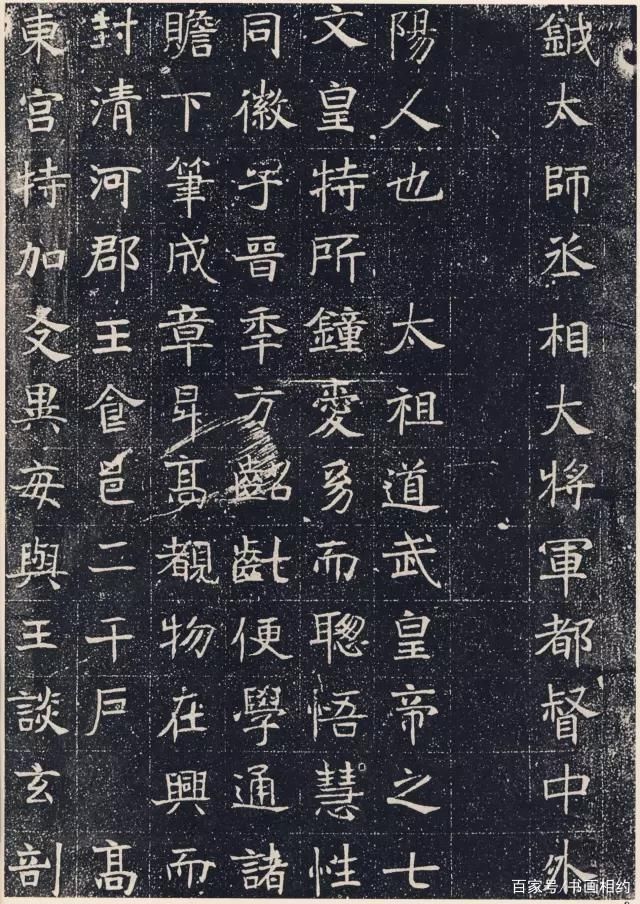 鉞太師丞相大將軍都督中外
陽人也　太祖道武皇帝之七
文皇特所鐘愛㓜而聰悟慧性
同徽子晉秊方齠齔便學通諸
贍下筆成章昇高覩物在興而
封清河郡王食邑二千戶　高
東宮特加友異每與王談玄剖
百家号/书画相约